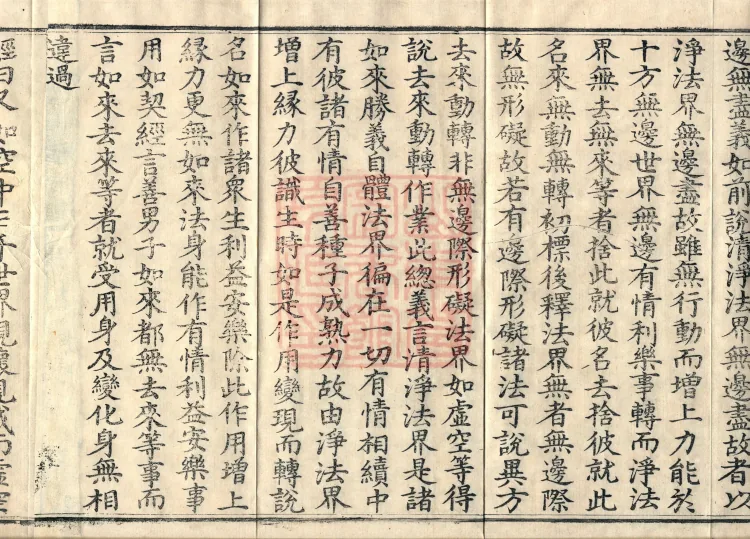 邊無盡義如前說清淨法界無邊盡故者以
淨法界無邊盡故雖無行動而增上力能於
十方無邊世界無邊有情利樂事轉而淨法
界無去無來等者捨此就彼名去捨彼就此
名來無動無轉初標後釋法界無者無邊際
故無形礙故若有邊際形礙諸法可說異方
去來動轉非無邊際形礙法界如虛空等得
說去來動轉作業此總義言清淨法界是諸
如來勝義自體法界徧在一切有情相續中
有彼諸有情自善種子成熟力故由淨法界
增上緣力彼識生時如是作用變現而轉說
名如來作諸眾生利益安樂除此作用增上
緣力更無如來法身能作有情利益安樂事
用如契經言善男子如來都無去來等事而
言如來去來等者就受用身及變化身無相
違過
經曰又如空中